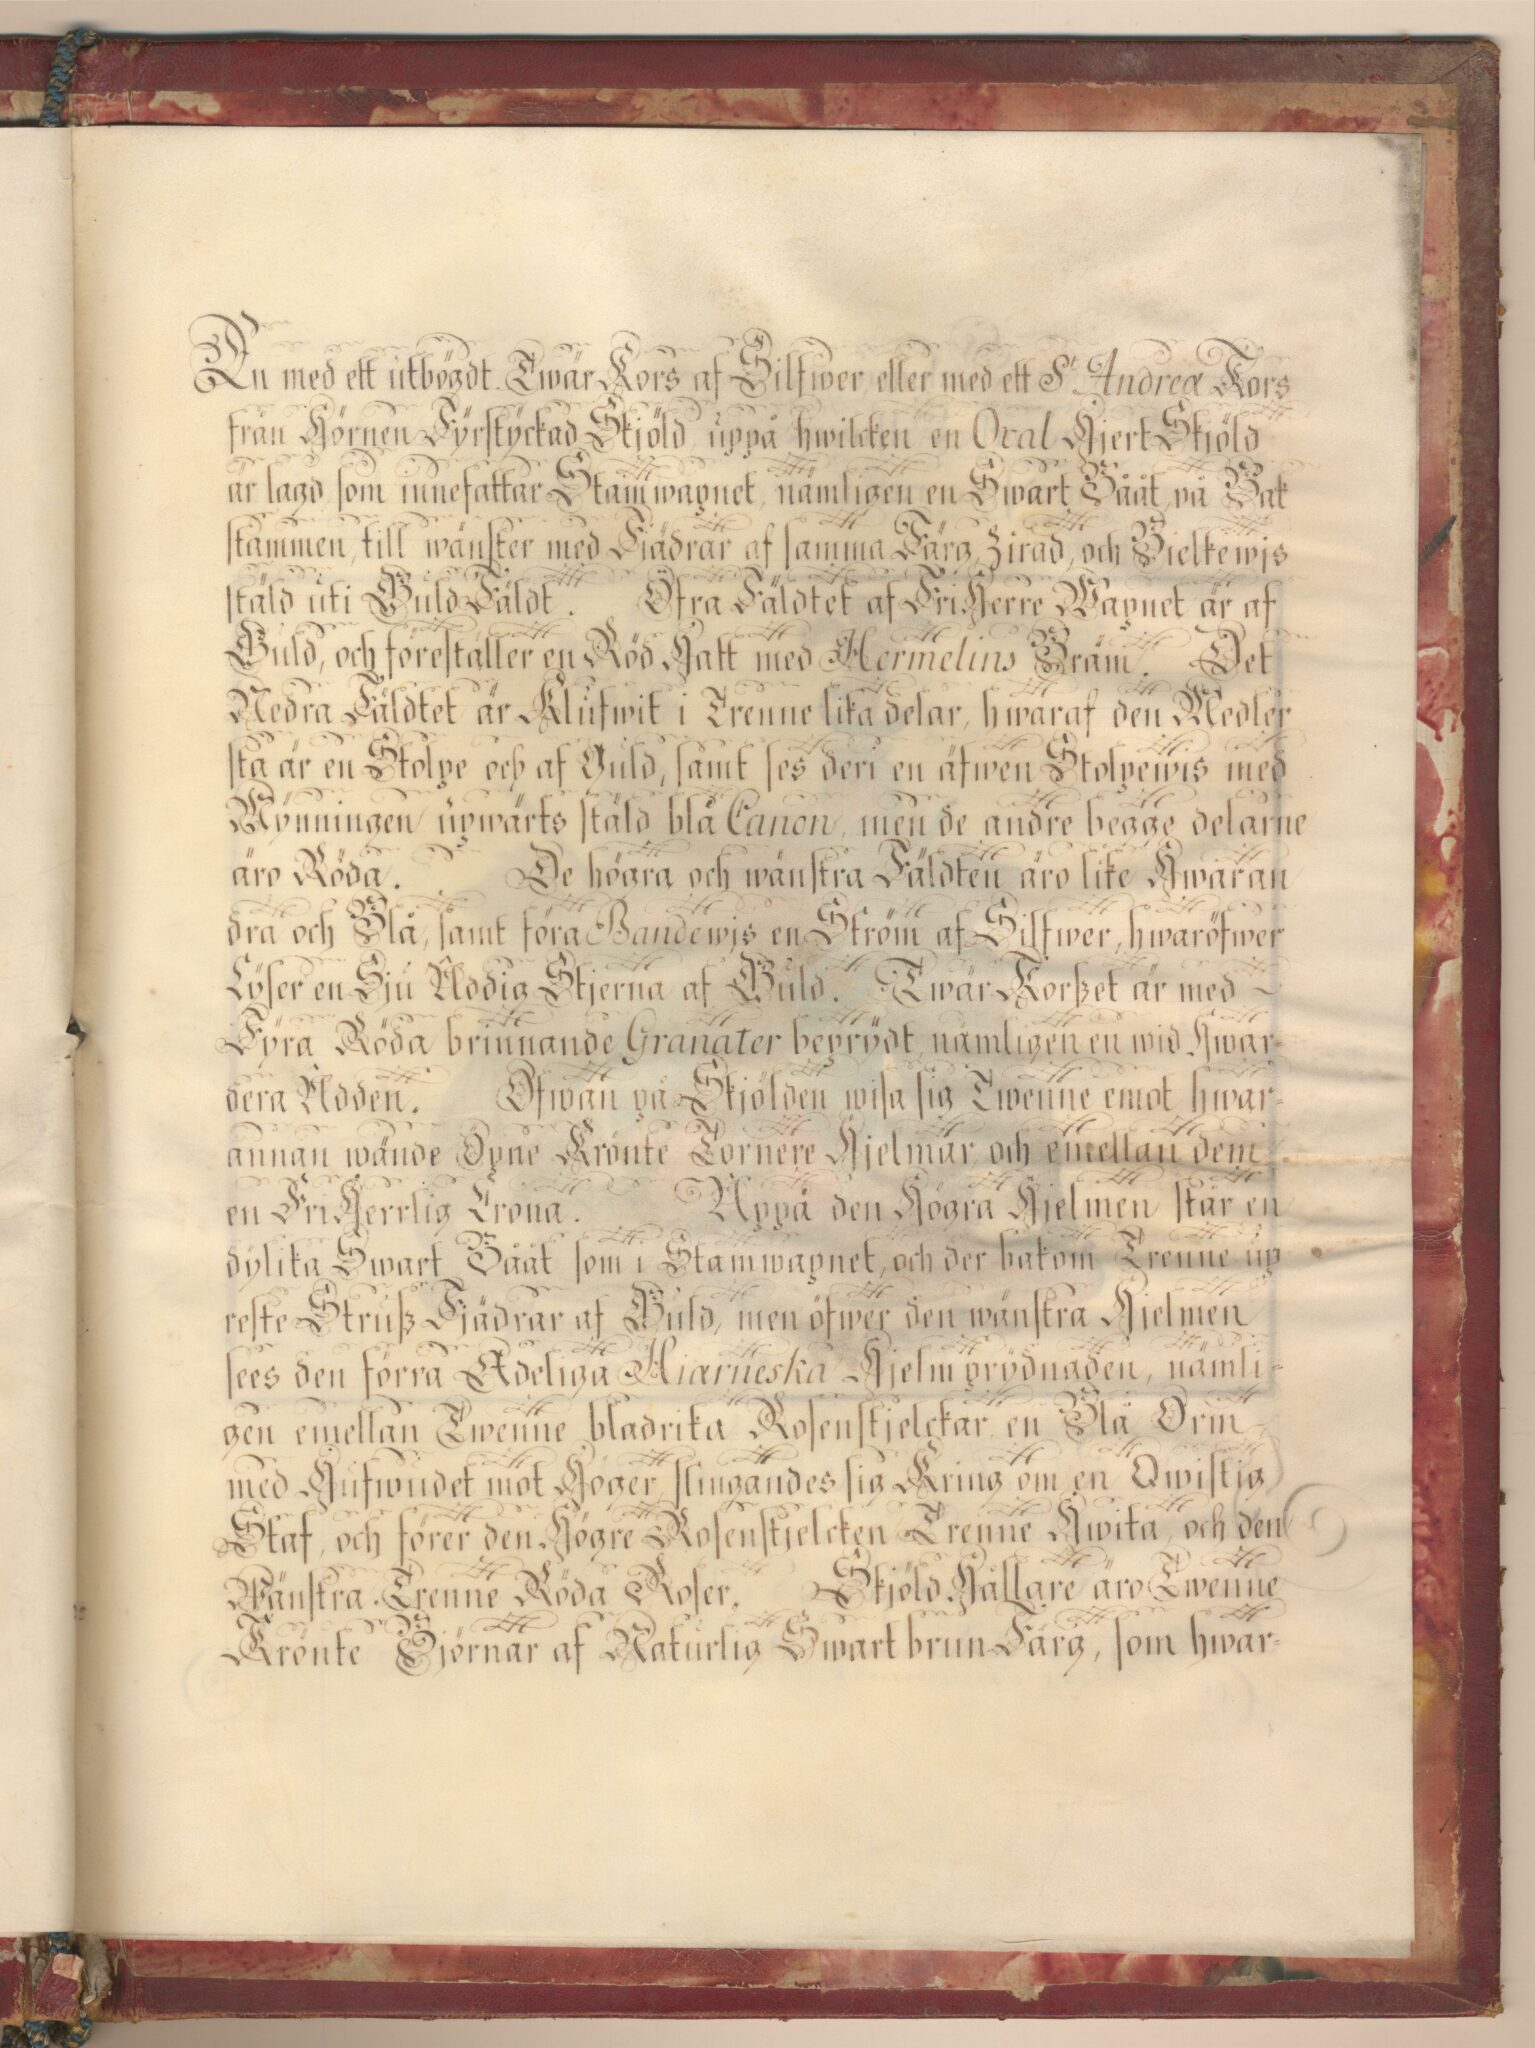 En med ett utbögdt Twär Kors af Silfwer, eller med ett S:t Andreæ Kors
från Hörnen Fyrstyckad Skjöld, uppå hwilcken en Oval Hjert Skjöld
är lagd, som innefattar Stamwapnet, nämligen en Swart Bååt, på Bak
stammen, till wänster med Fjädrar af samma Färg Zirad, och Bielkewis
stäld uti Guld Fäldt. Öfra Fäldtet af FriHerre Wapnet är af
Guld, och föreställer en Röd Hatt med Hermelins Bräm. Det
Nedra Fäldtet är Klufwit i Trenne lika delar, hwaraf den Medler
sta är en Stolpe och af Guld, samt ses deri en äfwen Stolpewis med
Mynningen upwärts stäld blå Canon, men de andre begge delarne
äro Röda. De högra och wänstra Fäldten äro like Hwaran
dra och Blå, samt föra Bandewis en Ström af Silfwer, hwaröfwer
Lyser en Sju Uddig Stjerna af Guld. Twär Korßet är med
Fyra Röda brinnande Granater beprydt, nämligen en wid Hwar-
dera Udden. Ofwan på Skjölden wisa sig Twenne emot hwar-
annan wände Öpne Krönte Tornere Hjelmar och emellan dem
en FriHerrlig Crona. Uppå den Högra Hjelmen står en
dylika Swart Bååt som i Stamwapnet, och der bakom Trenne up
reste Struß Fjädrar af Guld, men öfwer den wänstra Hjelmen
sees den förra Adeliga Hiärneska Hjelmprydnaden, nämli-
gen emellan Twenne bladrika Rosenstjelckar en Blå Orm
med Hufwudet mot Höger, slingandes sig Kring om en Qwistig
Staf, och förer den Högre Rosenstjelcken Trenne Hwita, och den
Wänstra Trenne Röda Roser. Skjöld Hållare äro Twenne
Krönte Björnar af Naturlig Swartbrun Färg, som hwar-